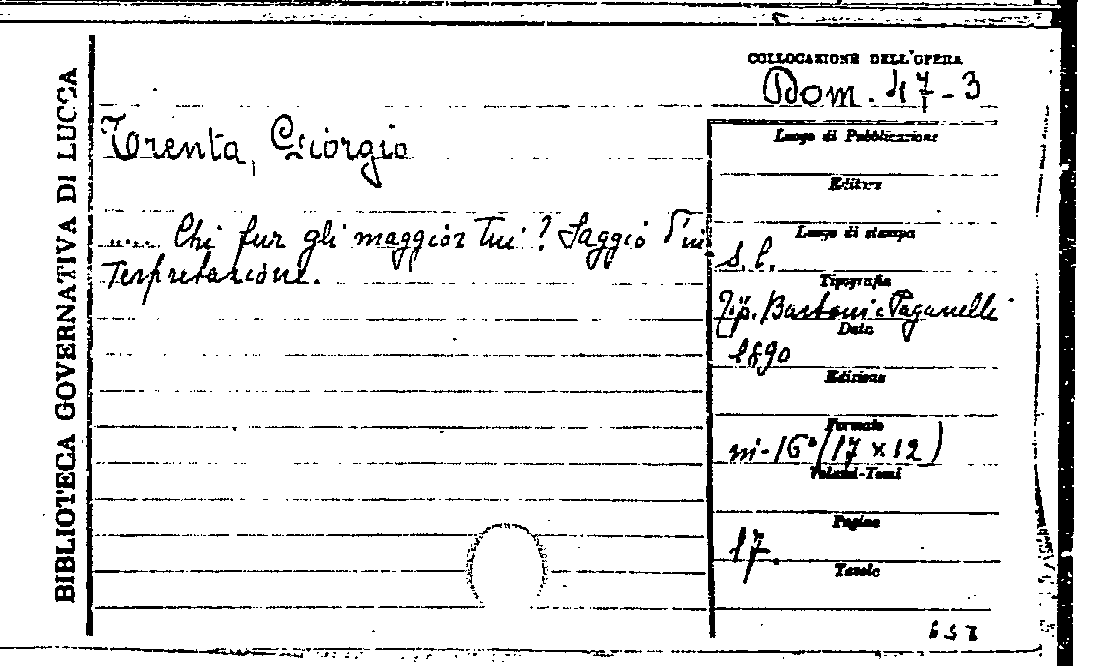 BIBLIOTECA GOVERNATIVA DI LUCCA
COLLOCAZIONE DELL'OPERA
Dom. 47-3
Trenta, Giorgio
.... Chi fur gli maggior tui? Saggio d'in
terpretazione.
Luogo di Pubblicazione
Editore
Luogo di stampa
s. l.
Tipografia
Tip. Bartoni e Paganelli
Data
1890
Edizione
Formato
in-16° (17 x 12)
Volumi-Tomi
Pagine
17.
Tavole